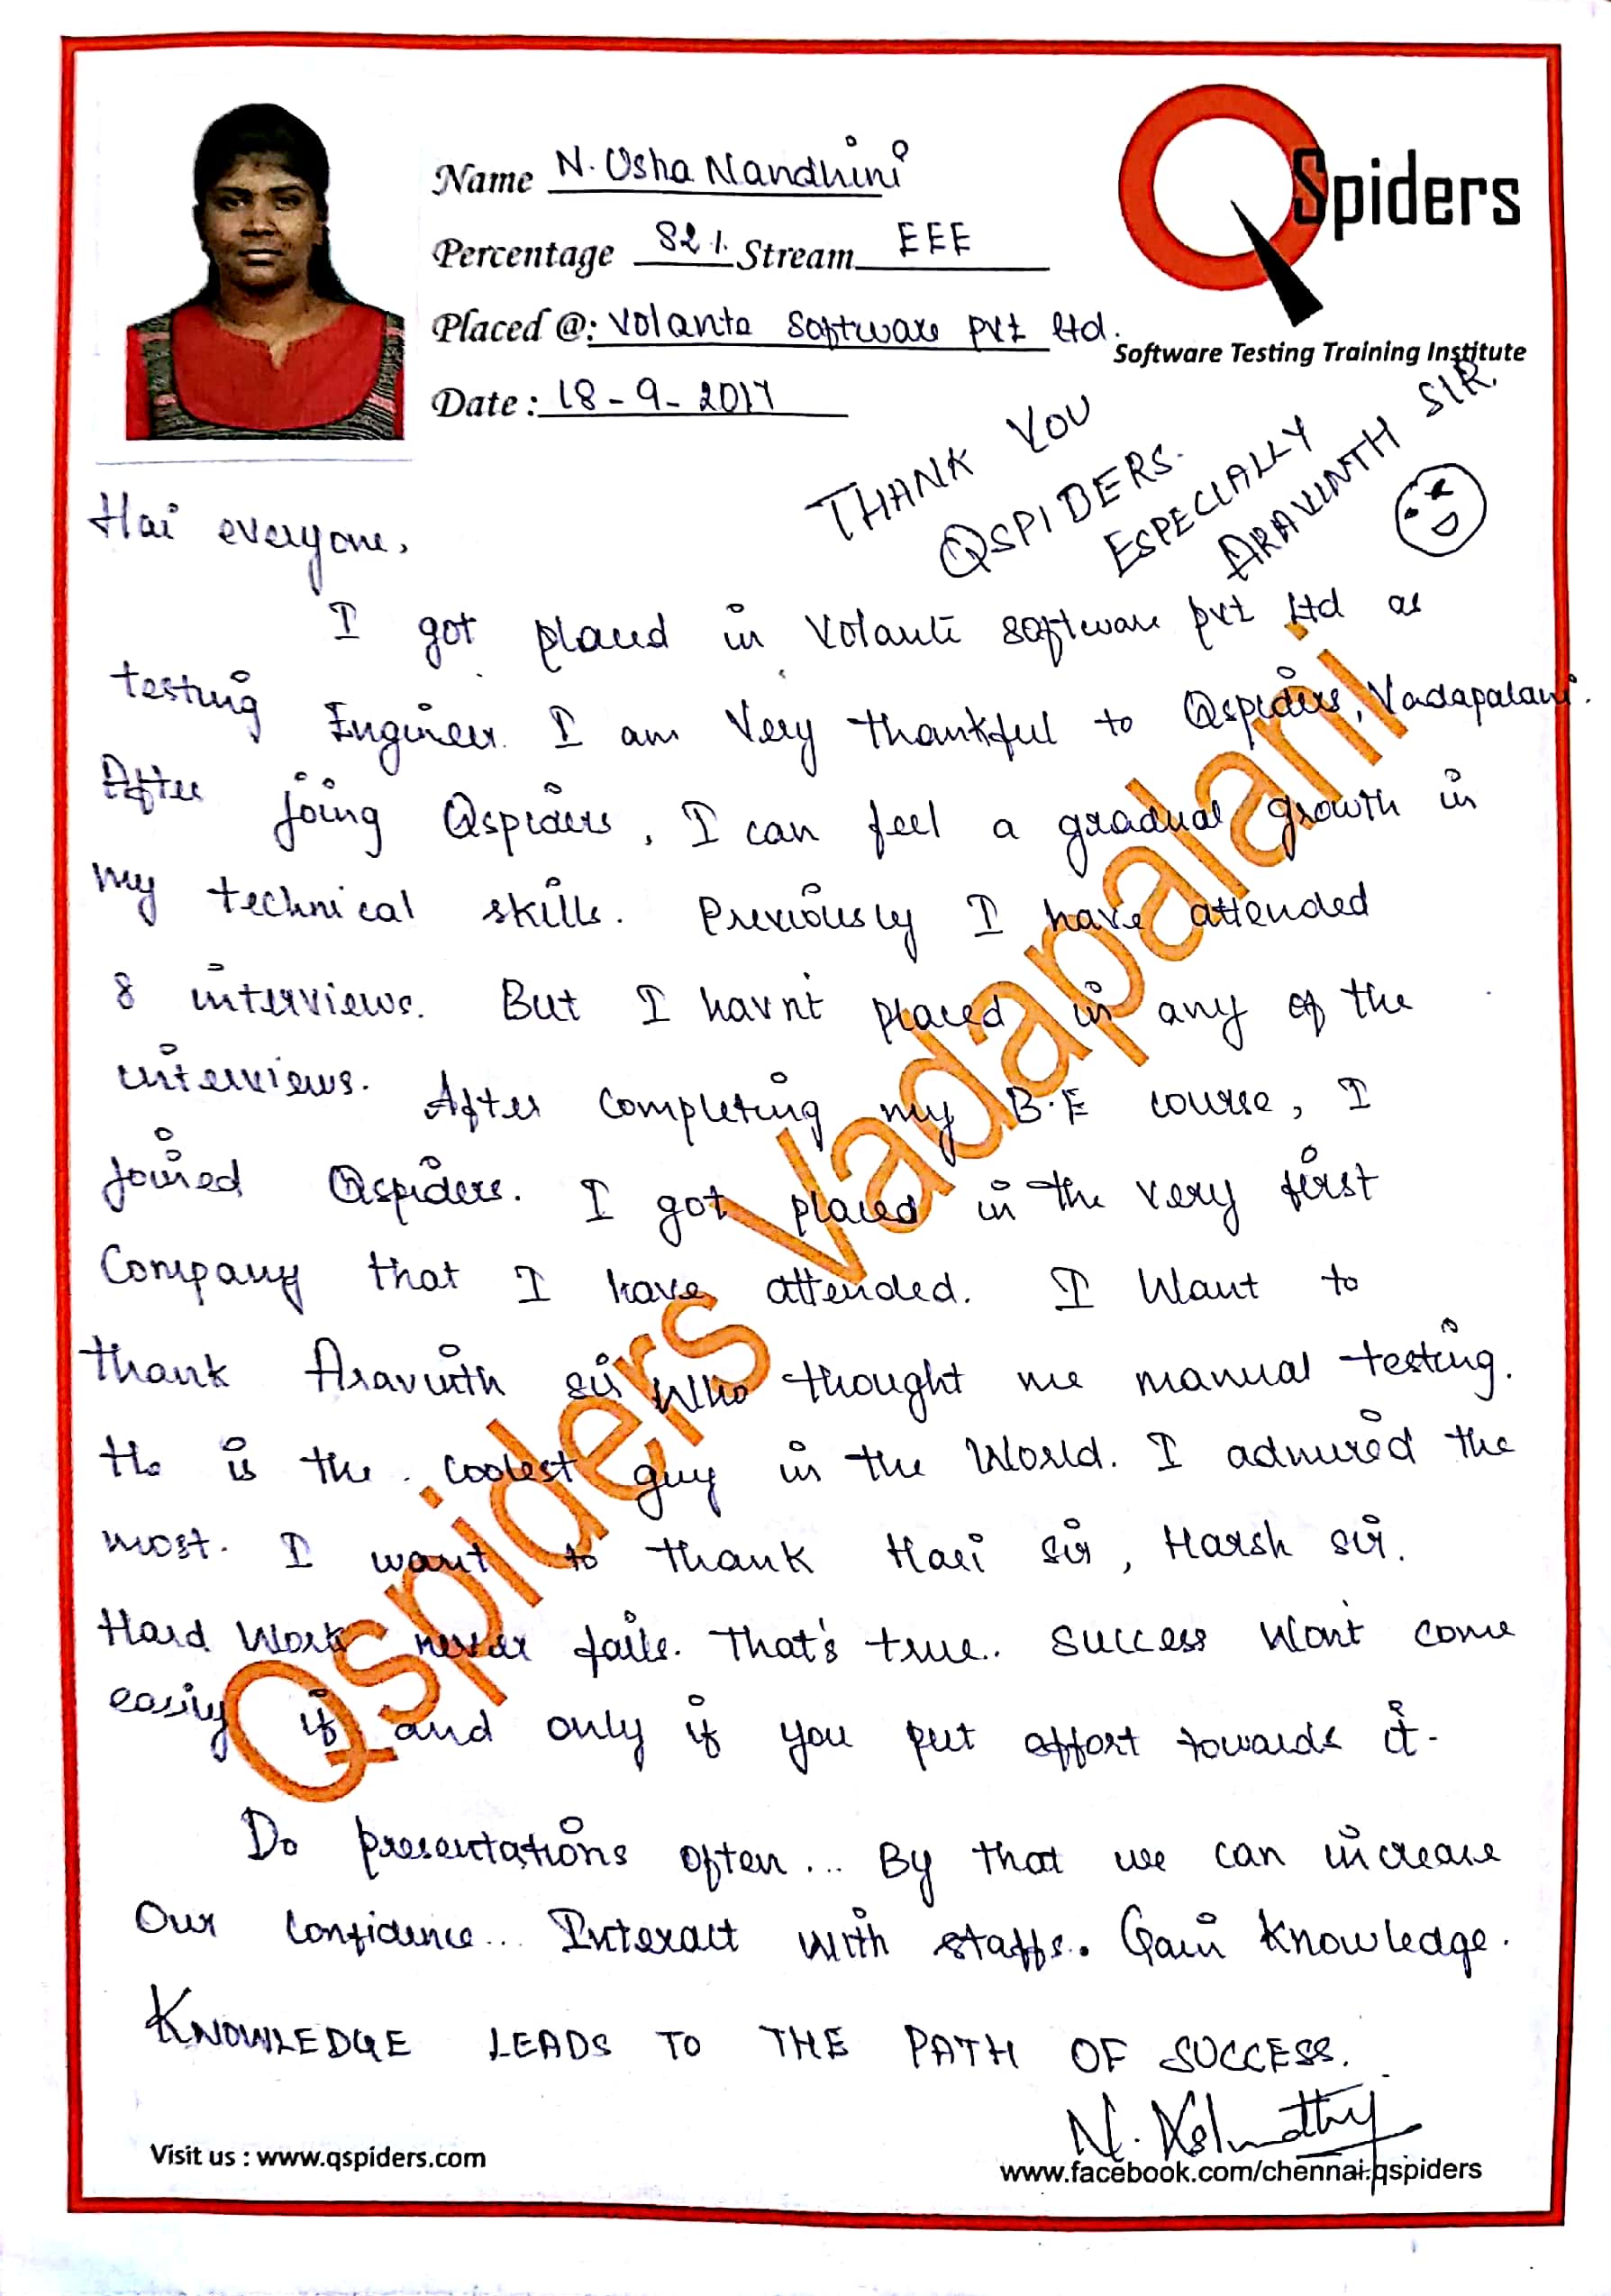 Name N. Usha Nandhini
QSpiders
Percentage 82 %. Stream EEE
Placed @: Volante Software pvt ltd.
Software Testing Training Institute
Date : 18-9-2017
THANK YOU
QSPIDERS.
ESPECIALLY
ARAVINTH SIR.
Hai everyone,
I got placed in Volante software pvt ltd as
testing Engineer. I am Very thankful to Qspiders, Vadapalani.
After joing Qspiders, I can feel a gradual growth in
my technical skills. Previously I have attended
8 interviews. But I havn't placed in any of the
interviews. After completing my B.E course, I
joined Qspiders. I got placed in the very first
Company that I have attended. I Want to
thank Aravinth sir who thought me manual testing.
He is the coolest guy in the World. I admired the
most. I want to thank Hari sir, Harsh sir.
Hard Work never fails. That's true.. Success Won't come
easily if and only if you put effort towards it.
Do presentations often... By that we can increase
Our confidence... Interact with staffs. Gain Knowledge.
KNOWLEDGE LEADS TO THE PATH OF SUCCESS.
N.
Visit us : www.qspiders.com
www.facebook.com/chennai.qspiders
Qspiders Vadapalani